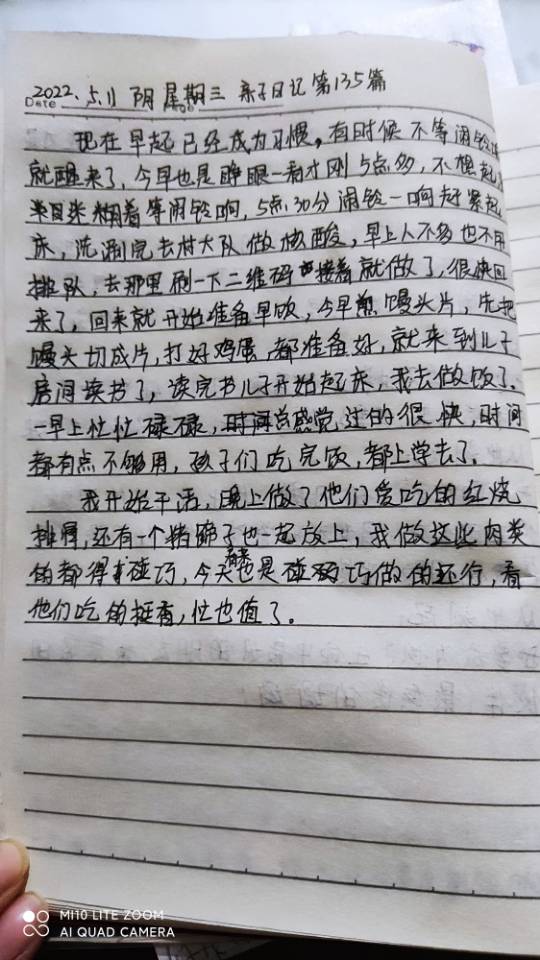 2022.5.11 阴 星期三 亲子日记第135篇
Date Page
现在早起已经成为习惯，有时候不等闹铃
就醒来了，今早也是睁眼一看才刚5点多，不想起
迷糊着等闹铃响，5点30分闹铃一响赶紧起
床，洗涮完去村大队做核酸，早上人不多也不用
排队，去那里刷一下二维码接着就做了，很快回
来了，回来就开始准备早饭，今早煎馒头片，先把
馒头切成片，打好鸡蛋，都准备好，就来到儿子
房间读书了，读完书儿子开始起床，我去做饭了。
一早上忙忙碌碌，时间总感觉过的很快，时间
都有点不够用，孩子们吃完饭，都上学去了。
我开始干活，晚上做了他们爱吃的红烧
排骨，还有一个猪蹄子也一起放上，我做这些肉类
的都得碰巧，今天也是碰巧做的还行，看
他们吃的挺香，忙也值了。
MI 10 LITE ZOOM
AI QUAD CAMERA